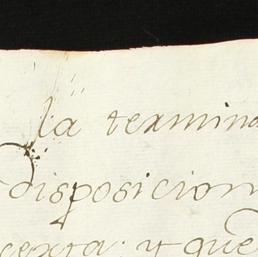 la termina
disposicion
cexta: y que